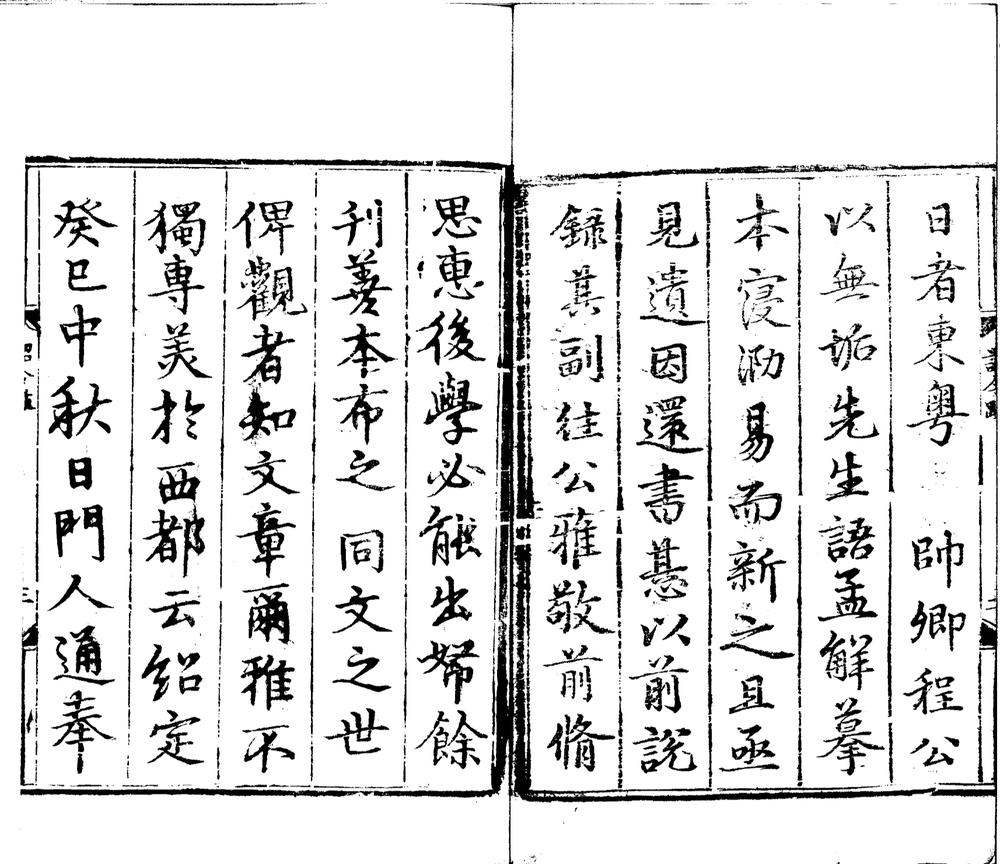 日者東粤 帥卿程公
以無垢先生語孟解摹
本寖泐易而新之且亟
見遺因還書惎以前説
録其副往公雅敬前脩
思惠後學必能出帑餘
刊善本布之 同文之世
俾觀者知文章爾雅不
獨專美於西都云紹定
癸巳中秋日門人通奉